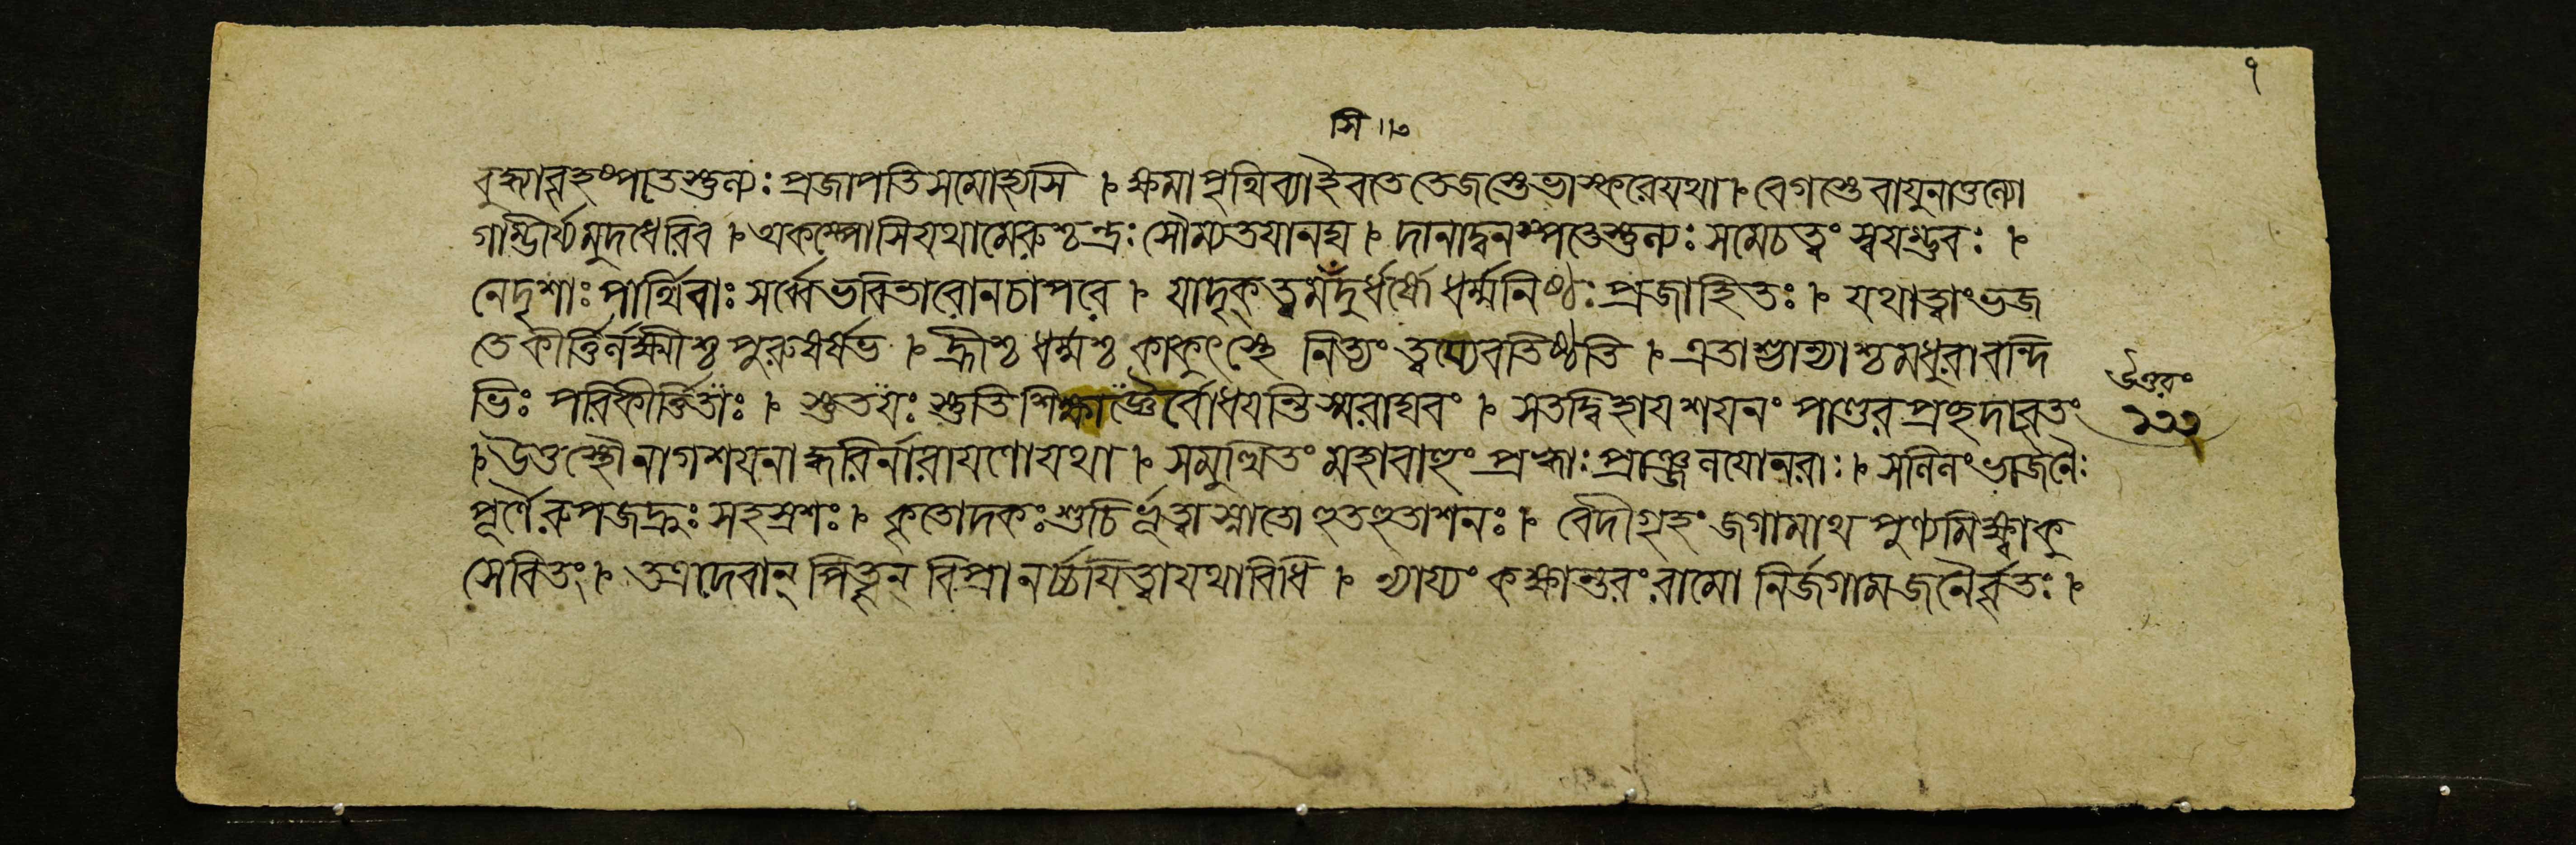 ৭
সি ॥৩
বুদ্ধ্যাবৃহস্পতেস্তুল্যঃ প্রজাপতিসমোহ্যসি । ক্ষমাপৃথিব্যাইবতে তেজস্তেভাস্করেযথা । বেগস্তেবায়ুনাতুল্যো
গাম্ভীর্য্যমুদধেরিব । অকম্প্যোসিযথামেরুশ্চন্দ্রঃ সৌম্যতয়ানঘ । দানাদ্ধনস্পতেস্তুল্যঃ সমেচত্বং স্বয়ম্ভুবঃ ।
নেদৃশাঃ পার্থিবাঃ সর্ব্বেভবিতারোনচাপরে । যাদৃক্ ত্বমদুর্ধর্ষো ধর্ম্মনিষ্ঠঃ প্রজাহিতঃ । যথাত্বাংভজ
তে কীর্ত্তির্লক্ষ্মীশ্চ পুরুষর্ষভ । হ্রীশ্চ ধর্ম্মশ্চ কাকুৎস্থে নিত্যং ত্বয্যেবতিষ্ঠতি । এতাশ্চান্যাশ্চমধুরাবন্দি
ভিঃ পরিকীর্ত্তিতাঃ । স্তুতয়ঃ স্তুতিশিক্ষাজ্ঞৈর্বোধয়ন্তিস্মরাঘবং । সতদ্বিহায়শয়নং পাণ্ডরপ্রচ্ছদাবৃতং
। উত্তস্থৌনাগশয়নাদ্ধরির্নারায়ণোযথা । সমুত্থিতং মহাবাহুং প্রহ্বাঃ প্রাঞ্জলয়োনরাঃ । সলিলং ভাজনৈঃ
পূর্ণৈরুপজহ্রুঃ সহস্রশঃ । কৃতোদকঃ শুচির্ভূত্বাস্নাতো হুতহুতাশনঃ । বেদীগৃহং জগামাথ পুণ্যমিক্ষ্বাকু
সেবিতং । তত্রাদেবান্ পিতৄন্ বিপ্রানর্চ্চয়িত্বাযথাবিধি । ন্যায্যং কক্ষান্তরং রামো নির্জগামজনৈর্বৃতঃ ।
উত্তরং
১৩৩